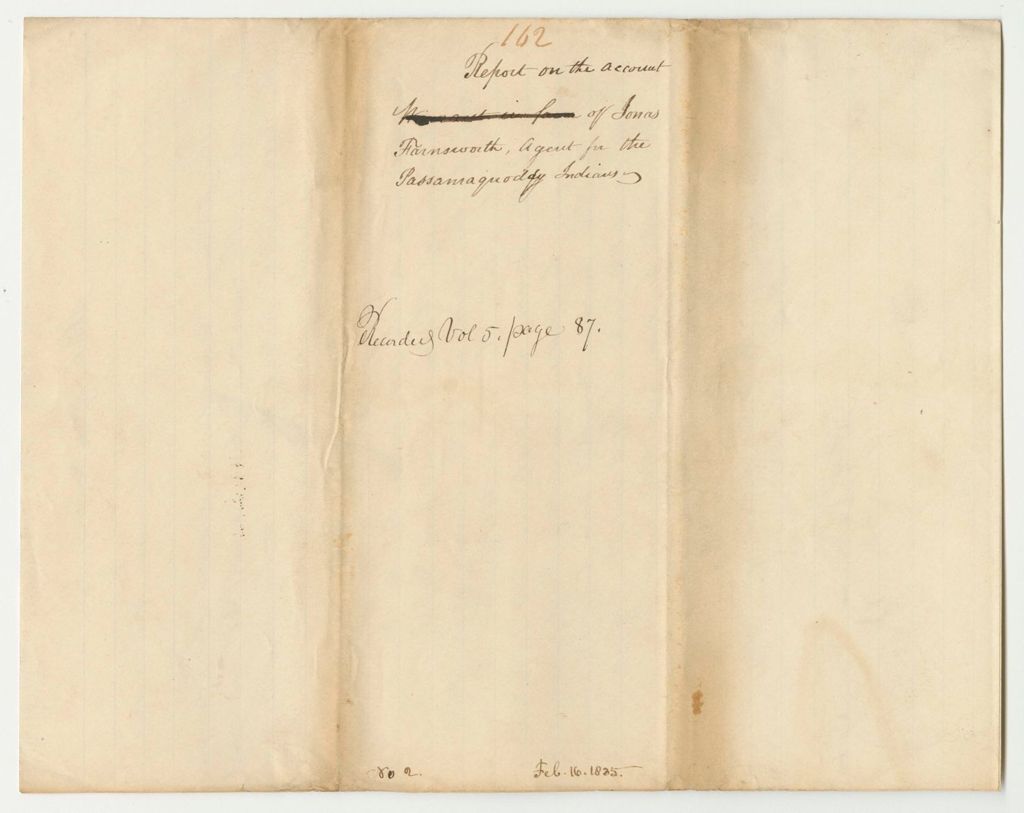 162
Report on the account
Warrant in favor of Jonas
Farnsworth, Agent for the
Passamaquoddy Indians
Recorded Vol 5. page 87.
No 2.
Feb. 16. 1835.